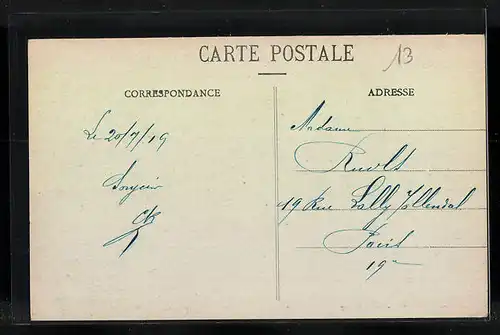 CARTE POSTALE
13
CORRESPONDANCE
ADRESSE
Le 20/7/19
Madame
19 Rue Lally Tollendal
Paris
19e